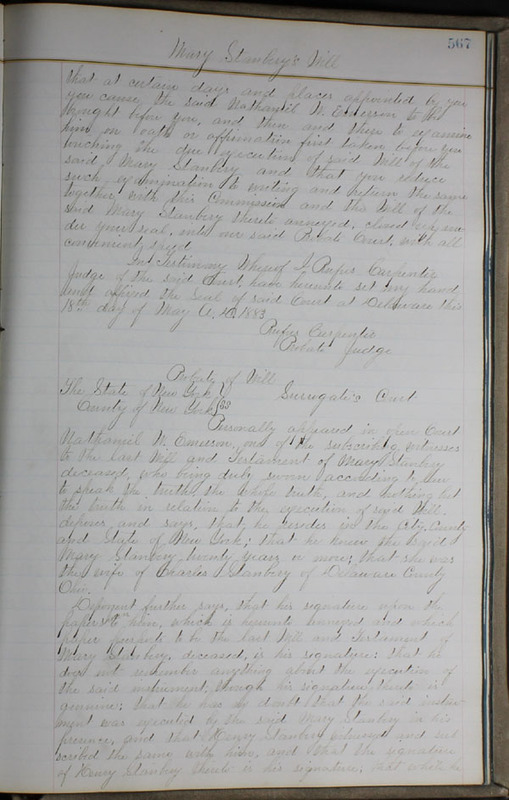 567
Mary Stanbery's Will
that at certain days and places appointed by you
you cause the said Nathaniel W. Emerson to be
brought before you, and then and there to examine
him on oath or affirmation first taken before you
touching the due execution of said Will of the
said Mary Stanbery and that you reduce
such examination to writing and return the same
together with this Commission and the Will of the
said Mary Stanbery thereto annexed, closed up un
der your seal, unto our said Probate Court, with all
convenient speed.
In Testimony Whereof I, Rufus Carpenter
Judge of the said Court, have hereunto set my hand
and affixed the Seal of said Court at Delaware this
18th day of May A.D. 1883
Rufus Carpenter
Probate Judge
Probate of Will
The State of New York } Surrogate's Court
County of New York } SS
Personally appeared in open Court
Nathaniel W. Emerson, one of the subscribing witnesses
to the last Will and Testament of Mary Stanbery
deceased, who being duly sworn according to law
to speak the truth, the whole truth, and nothing but
the truth in relation to the execution of said Will,
deposes and says, that, he resides in the City, County
and State of New York; that he knew the said
Mary Stanbery twenty years or more; that she was
the wife of Charles Stanbery of Delaware County
Ohio.
Deponent further says, that his signature upon the
paper to him, which is hereunto annexed and which
paper purports to be the last Will and Testament of
Mary Stanbery, deceased, is his signature: that he
does not remember anything about the execution of
the said instrument, though his signature thereto is
genuine; that he has no doubt that the said instru-
ment was executed by the said Mary Stanbery in his
presence, and that Henry Stanbery witnessed and sub
scribed the same with him, and that the signature
of Henry Stanbery thereto is his signature; that while he